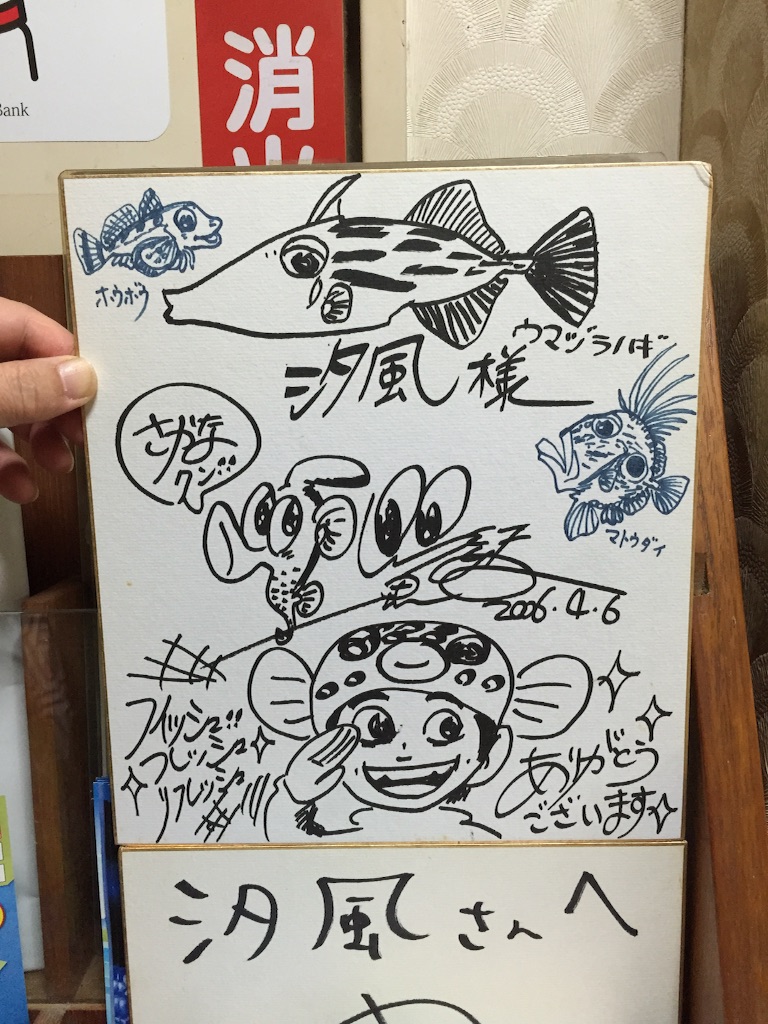 Bank
消
ホウボウ
ウマヅラハギ
汐風様
さかな
クン!!
マトウダイ
2006.4.6
フィッシュ!!
フレッシュ
リフレッシュ
ありがとう
ございます
汐風さんへ